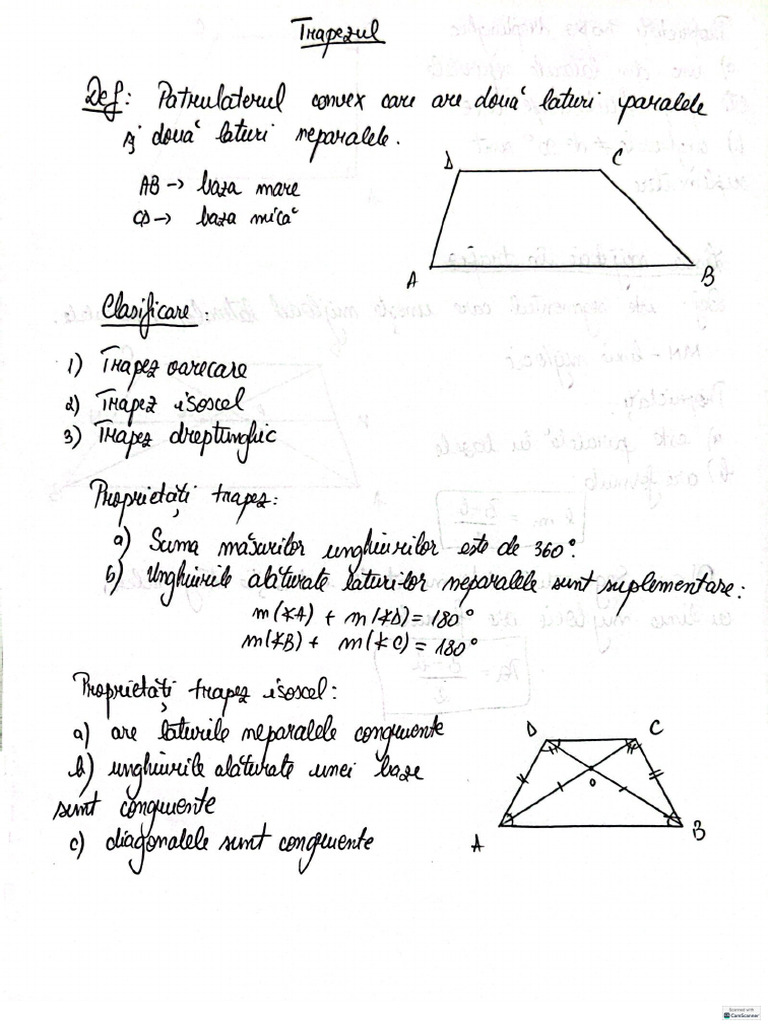 Trapezul
Def: Patrulaterul convex care are două laturi paralele
și două laturi neparalele.
AB → baza mare
CD → baza mică
D C
A B
Clasificare:
1) Trapez oarecare
2) Trapez isoscel
3) Trapez dreptunghic
Proprietăți trapez:
a) Suma măsurilor unghiurilor este de 360°.
b) Unghiurile alăturate laturilor neparalele sunt suplementare:
m(∢A) + m(∢D) = 180°
m(∢B) + m(∢C) = 180°
Proprietăți trapez isoscel:
a) are laturile neparalele congruente
b) unghiurile alăturate unei baze
sunt congruente
c) diagonalele sunt congruente
D C
O
A B
Scanned with
CS CamScanner